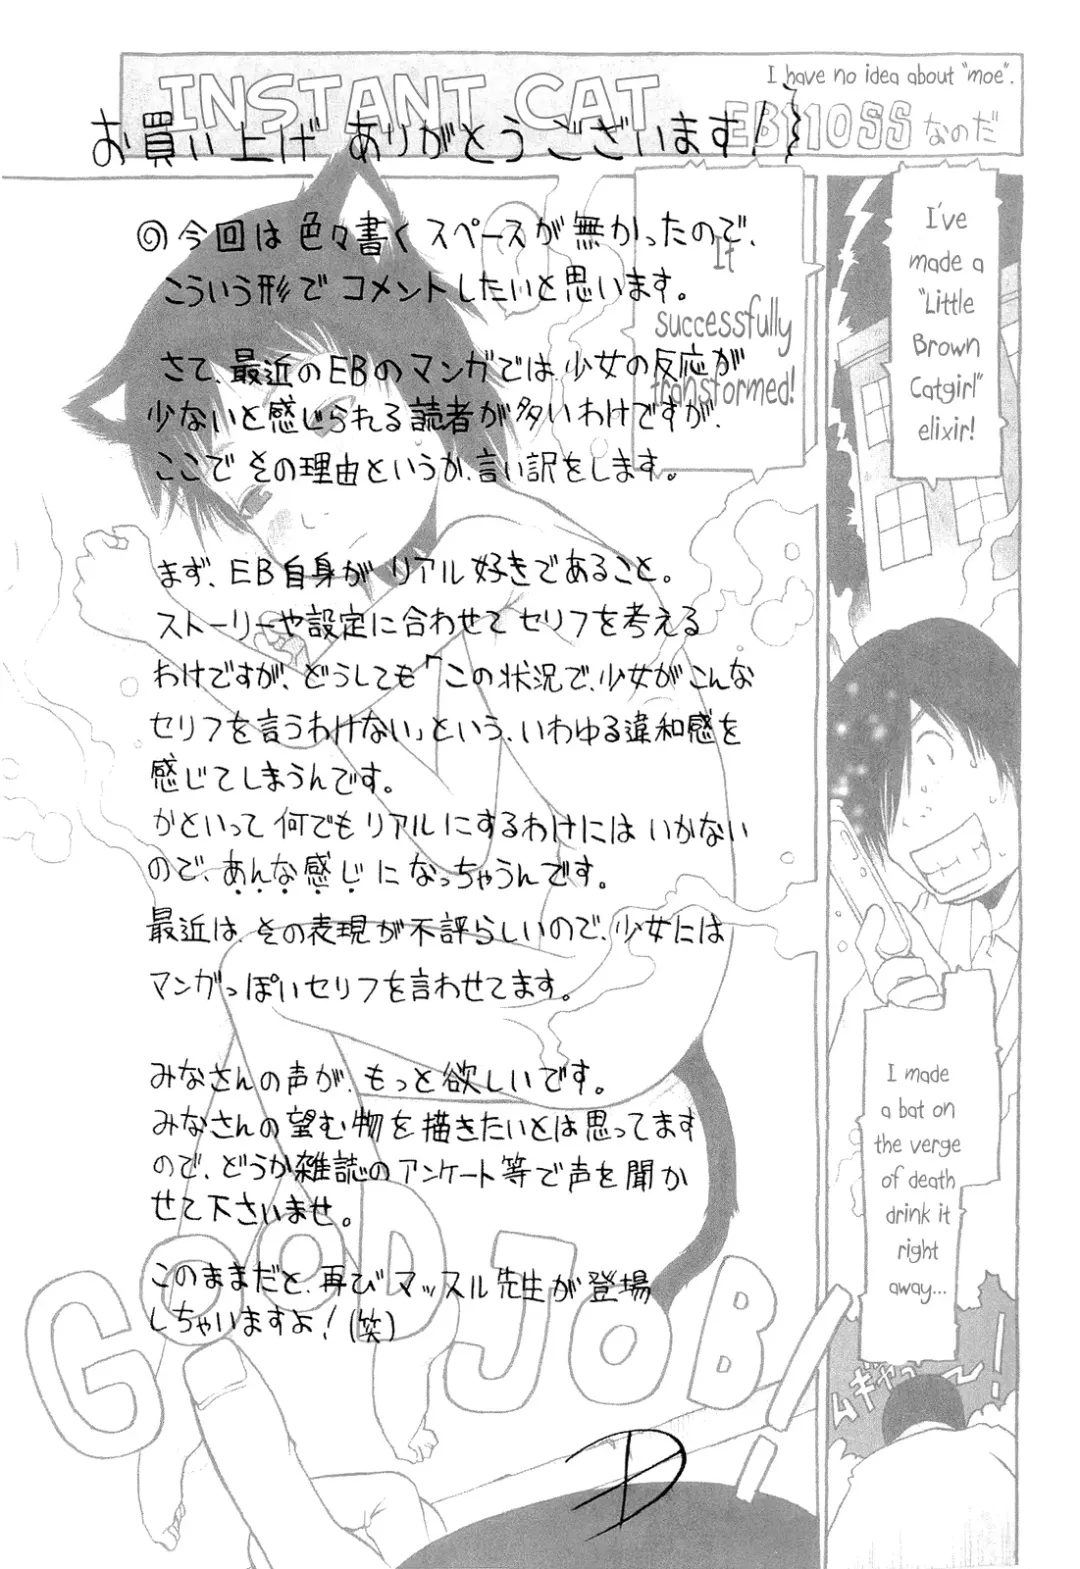 INSTANT CAT
I have no idea about "moe".
EB110SS なのだ
お買い上げ ありがとうございます!
◎今回は色々書くスペースが無かったので、
こういう形でコメントしたいと思います。
さて、最近のEBのマンガでは、少女の反応が
少ないと感じられる読者が多いわけですが、
ここでその理由というか、言い訳をします。
まず、EB自身がリアル好きであること。
ストーリーや設定に合わせてセリフを考える
わけですが、どうしても「この状況で、少女がこんな
セリフを言うわけない」という、いわゆる違和感を
感じてしまうんです。
かといって何でもリアルにするわけにはいかない
ので、あんな感じになっちゃうんです。
最近は、その表現が不評らしいので、少女には
マンガっぽいセリフを言わせてます。
みなさんの声が、もっと欲しいです。
みなさんの望む物を描きたいとは思ってます
ので、どうか雑誌のアンケート等で声を聞か
せて下さいませ。
このままだと、再びマッスル先生が登場
しちゃいますよ!(笑)
I've
made a
"Little
Brown
Catgirl"
elixir!
If
successfully
transformed!
I made
a bat on
the verge
of death
drink it
right
away...
ムギャァ〜〜!
GOOD JOB!!